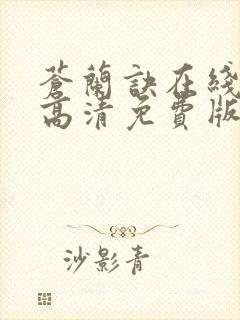 蒼蘭訣在綫
高清免費版
沙影青